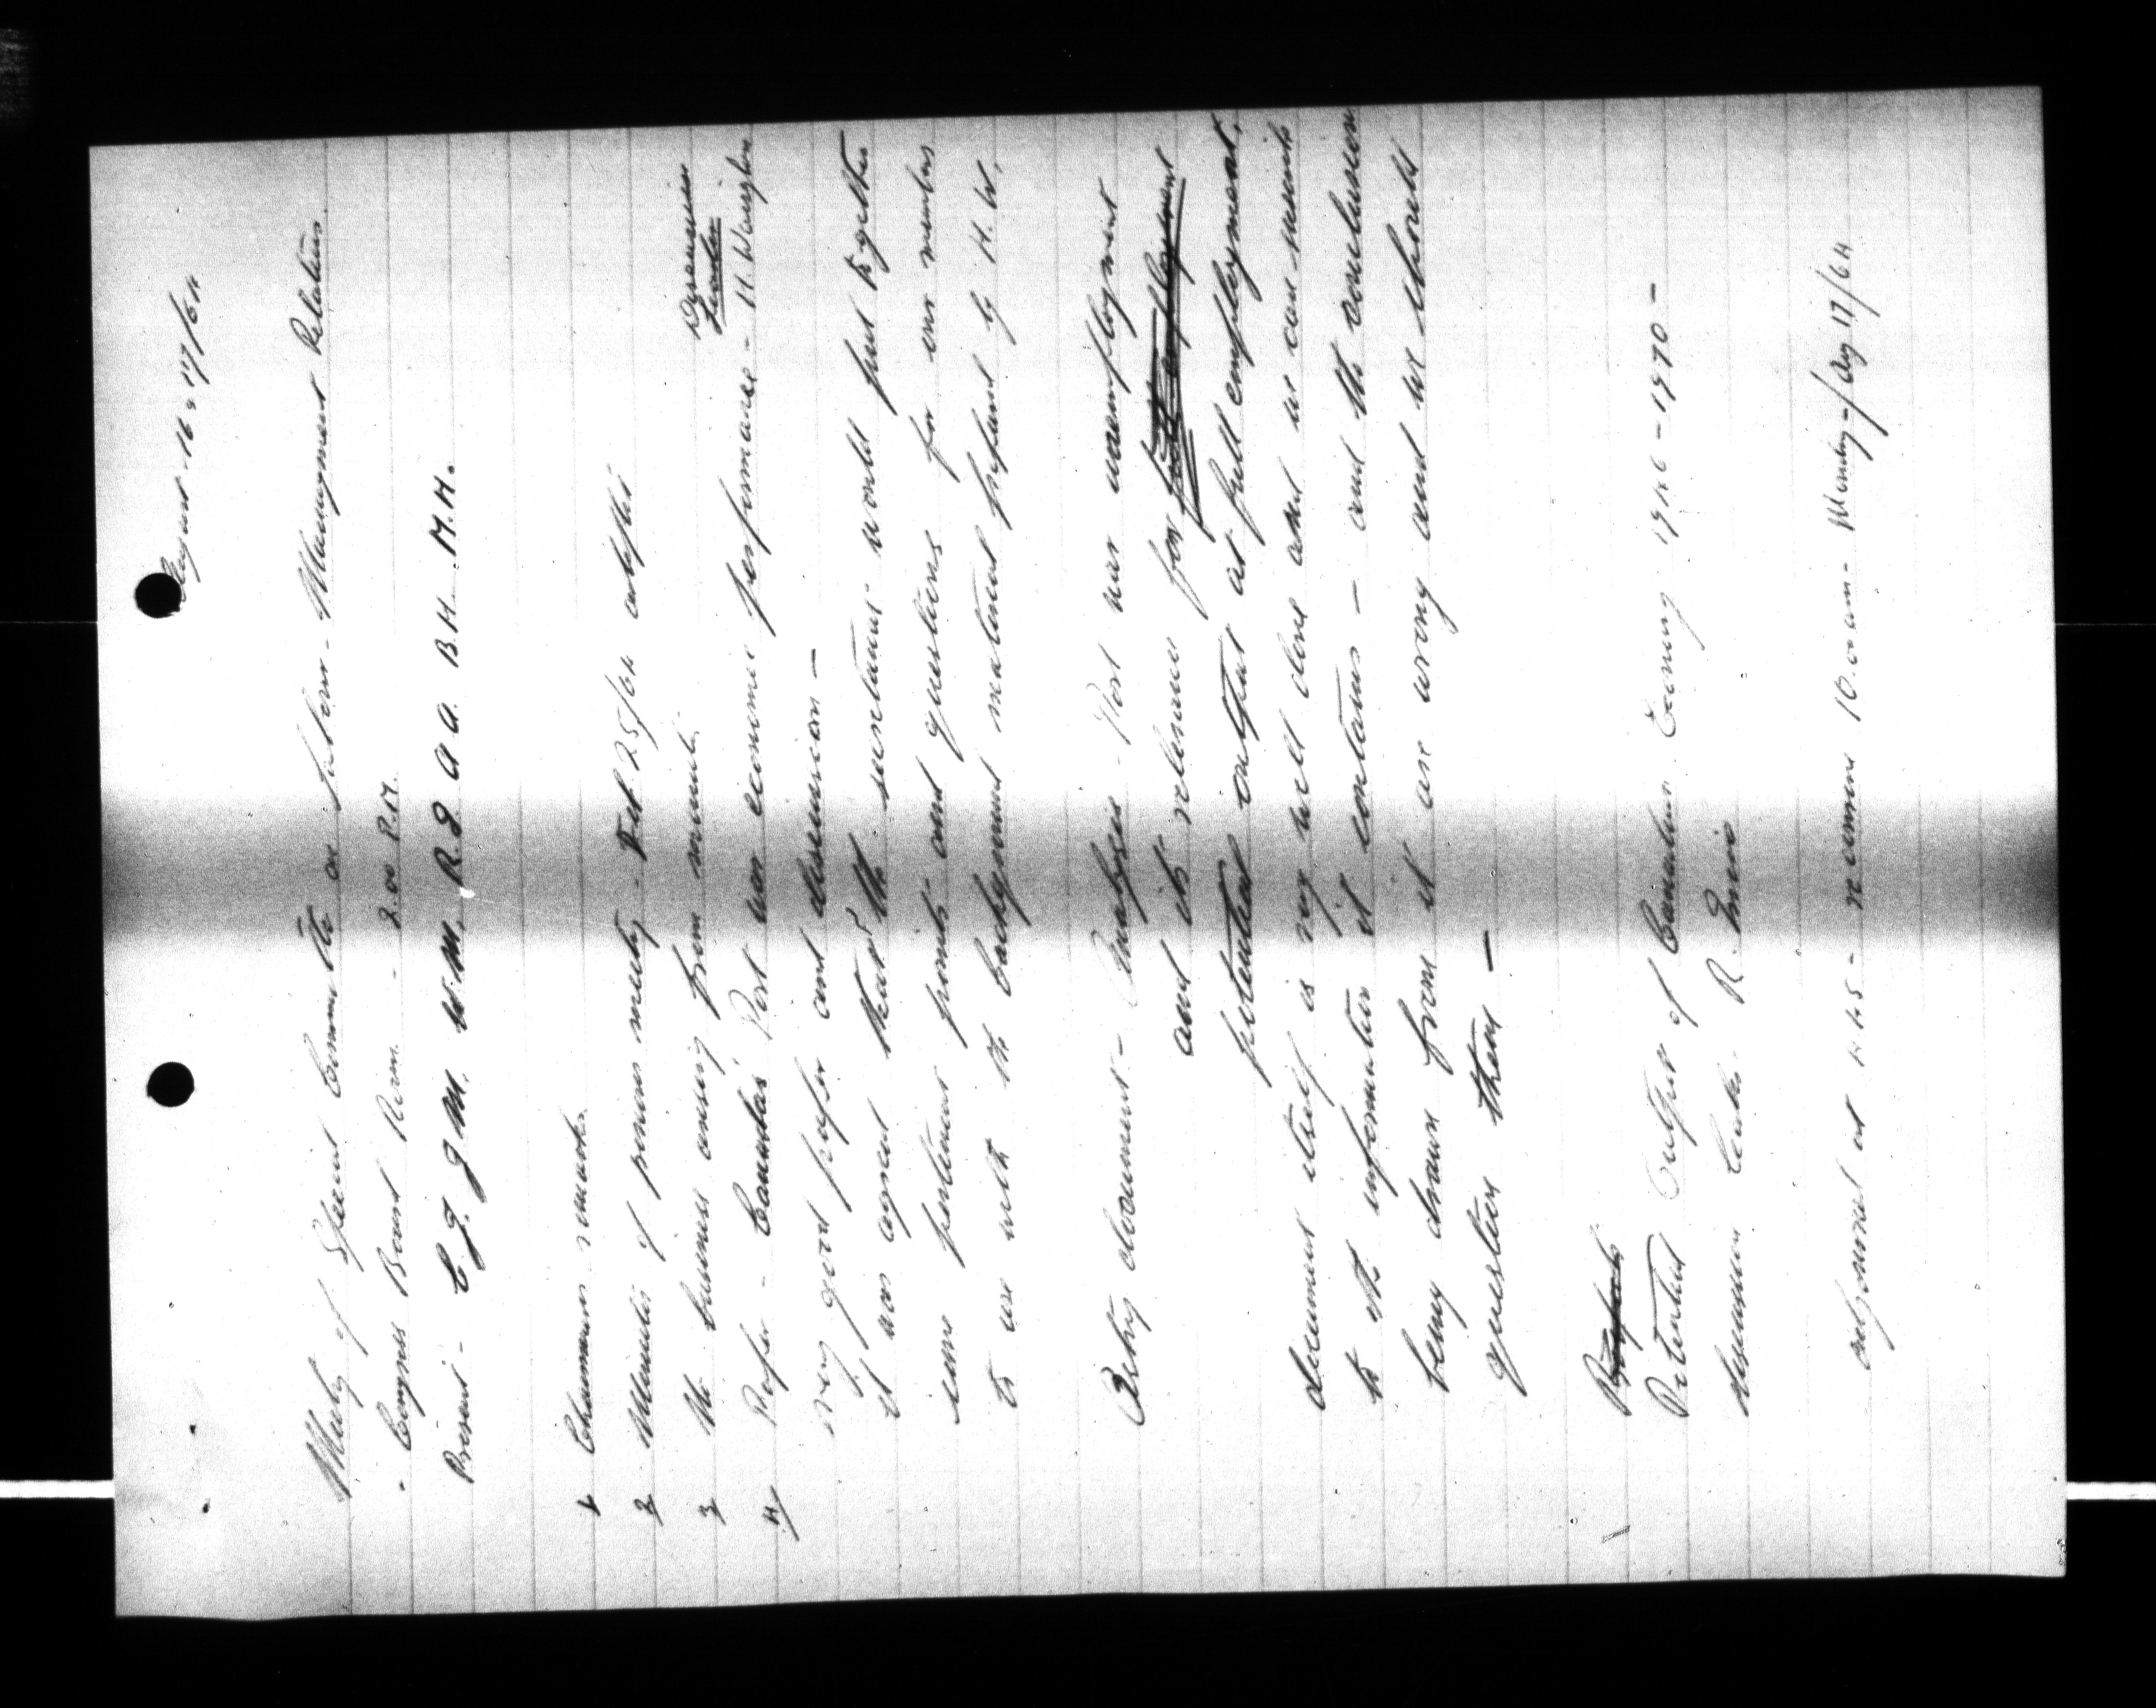 August 16 & 17/64
Meeting of Special Committee on Labour-Management Relations.
- Congress Board Room - 2.00 P.M.
Present - C.J. J.M. W.M. R.J A A. B.H. M.H.
1 Chairmans remarks.
2 Minutes of previous meeting - Feb 25/64 adopted
3 No business arising from minutes.
Discussion
Leader
4/ Paper - Canadas Post war economic performance - H Waisglass
very good paper and discussion -
it was agreed that the secretaries would put together
some pertinent points and questions for our members
to use with the background material prepared by H.W.
document - Analyses - Post war unemployment
and its relevance for full employment
potential output at full employment.
document itself is very well done and we can
to the information it contains - and the conclusion
being drawn from it are wrong and we should
question them -
Potential Output of Canadian Economy 1946 - 1970 -
discussion leader R.
adjourned at 4.45 - reconvene 10.00 am - Monday - / Aug 17/64